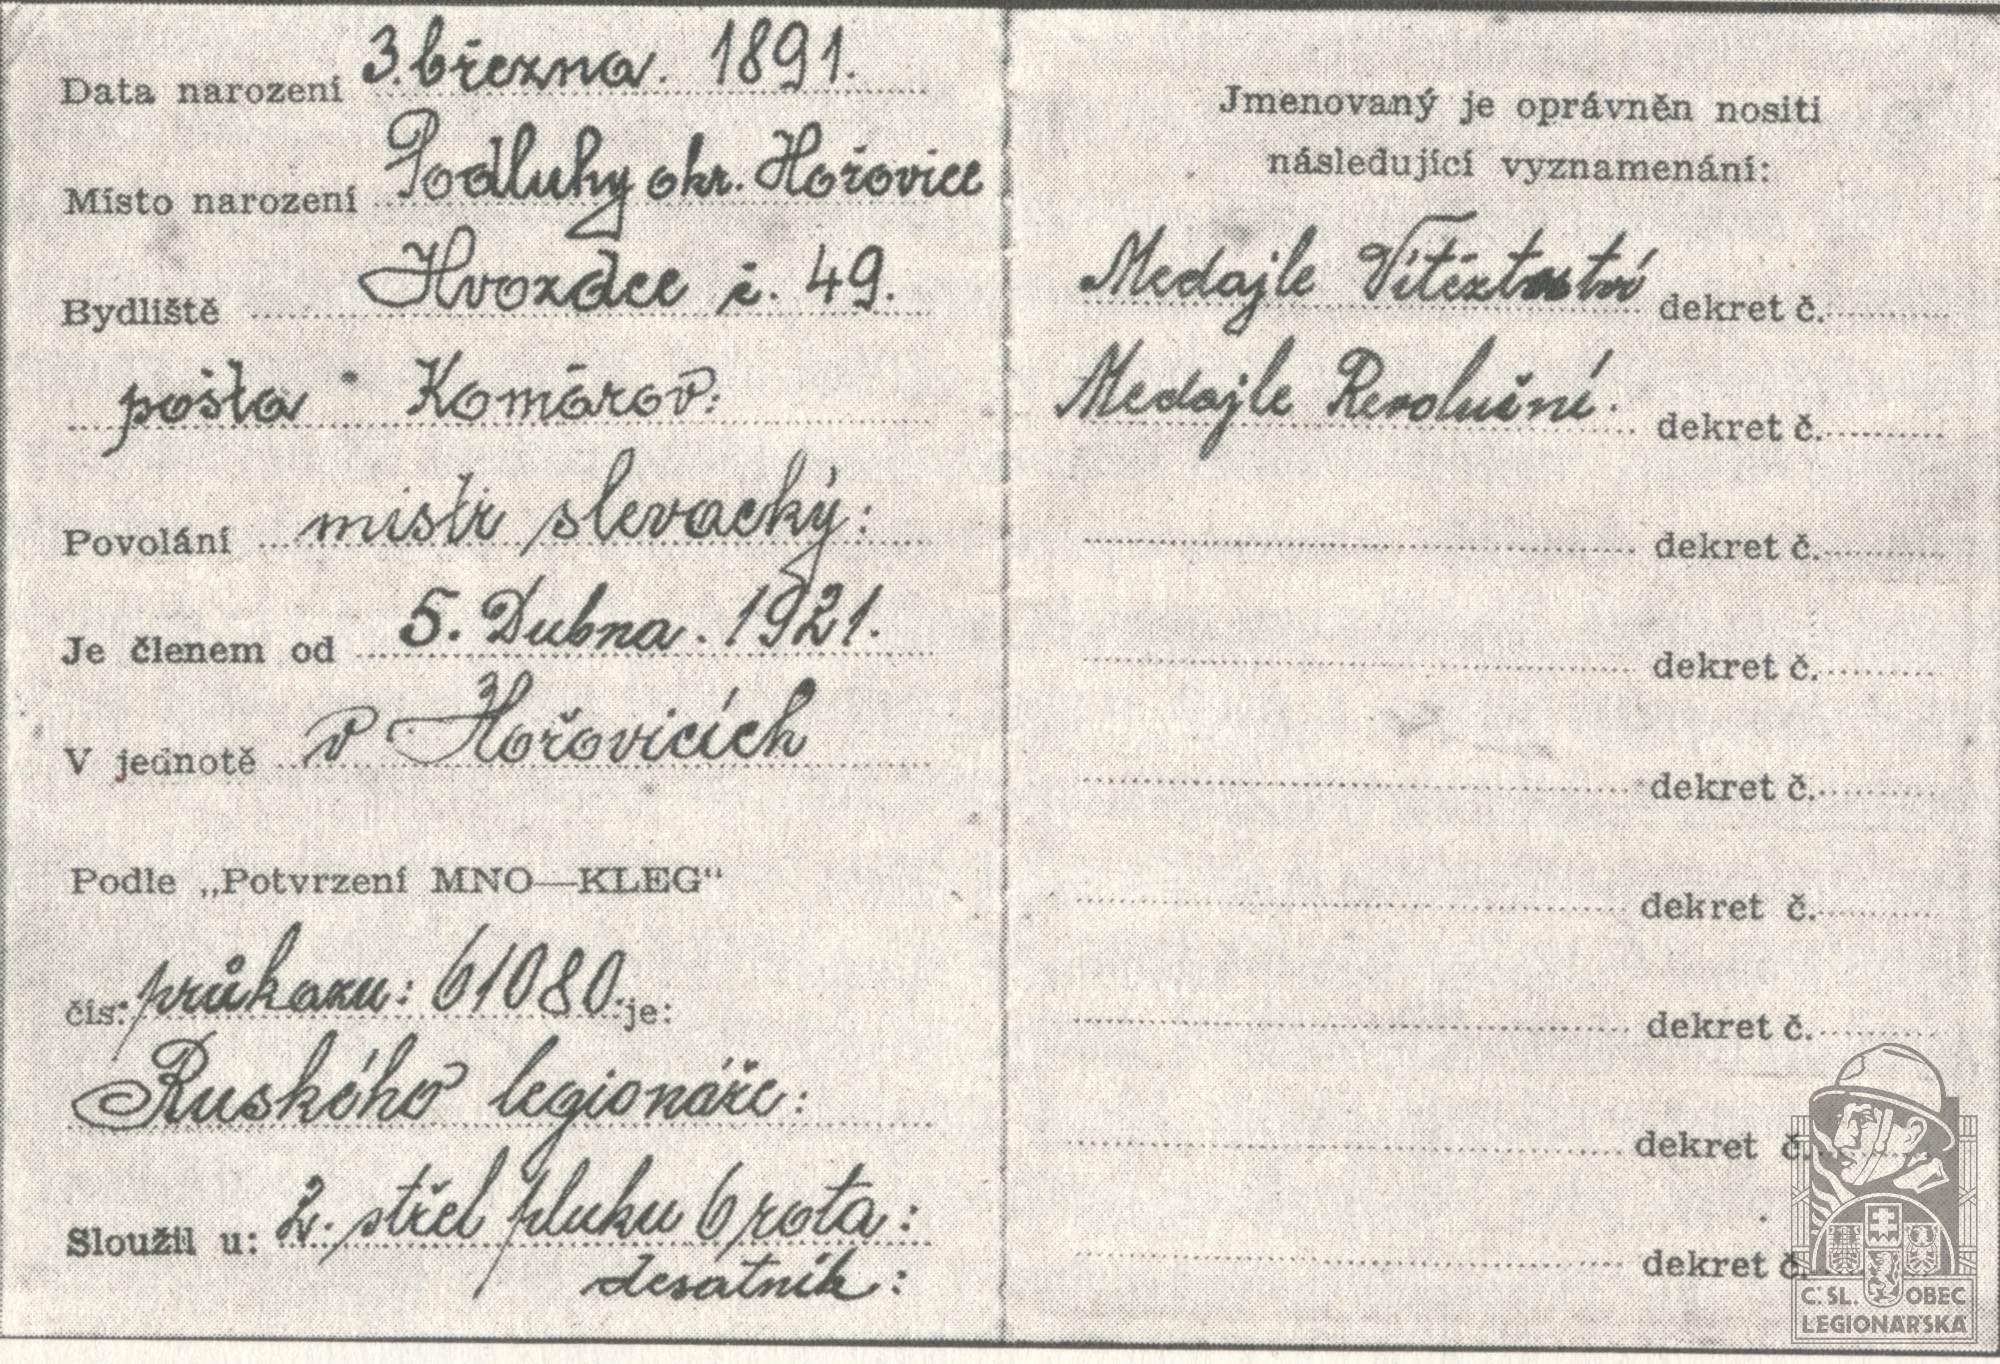 Data narození 3. března. 1891.
Místo narození Podluhy okr. Hořovice
Bydliště Hvozdec č. 49.
pošta Komárov:
Povolání mistr slevacký:
Je členem od 5. Dubna. 1921.
V jednotě v Hořovicích
Podle „Potvrzení MNO—KLEG“
čís: průkazu: 61080. je:
Ruského legionáře:
Sloužil u: 2. střel pluku 6 rota:
desatník:
Jmenovaný je oprávněn nositi
následující vyznamenání:
Medajle dekret č.
Medajle Revoluční. dekret č.
dekret č.
dekret č.
dekret č.
dekret č.
dekret č.
dekret č.
dekret č.
Č. SL. OBEC
LEGIONÁŘSKÁ